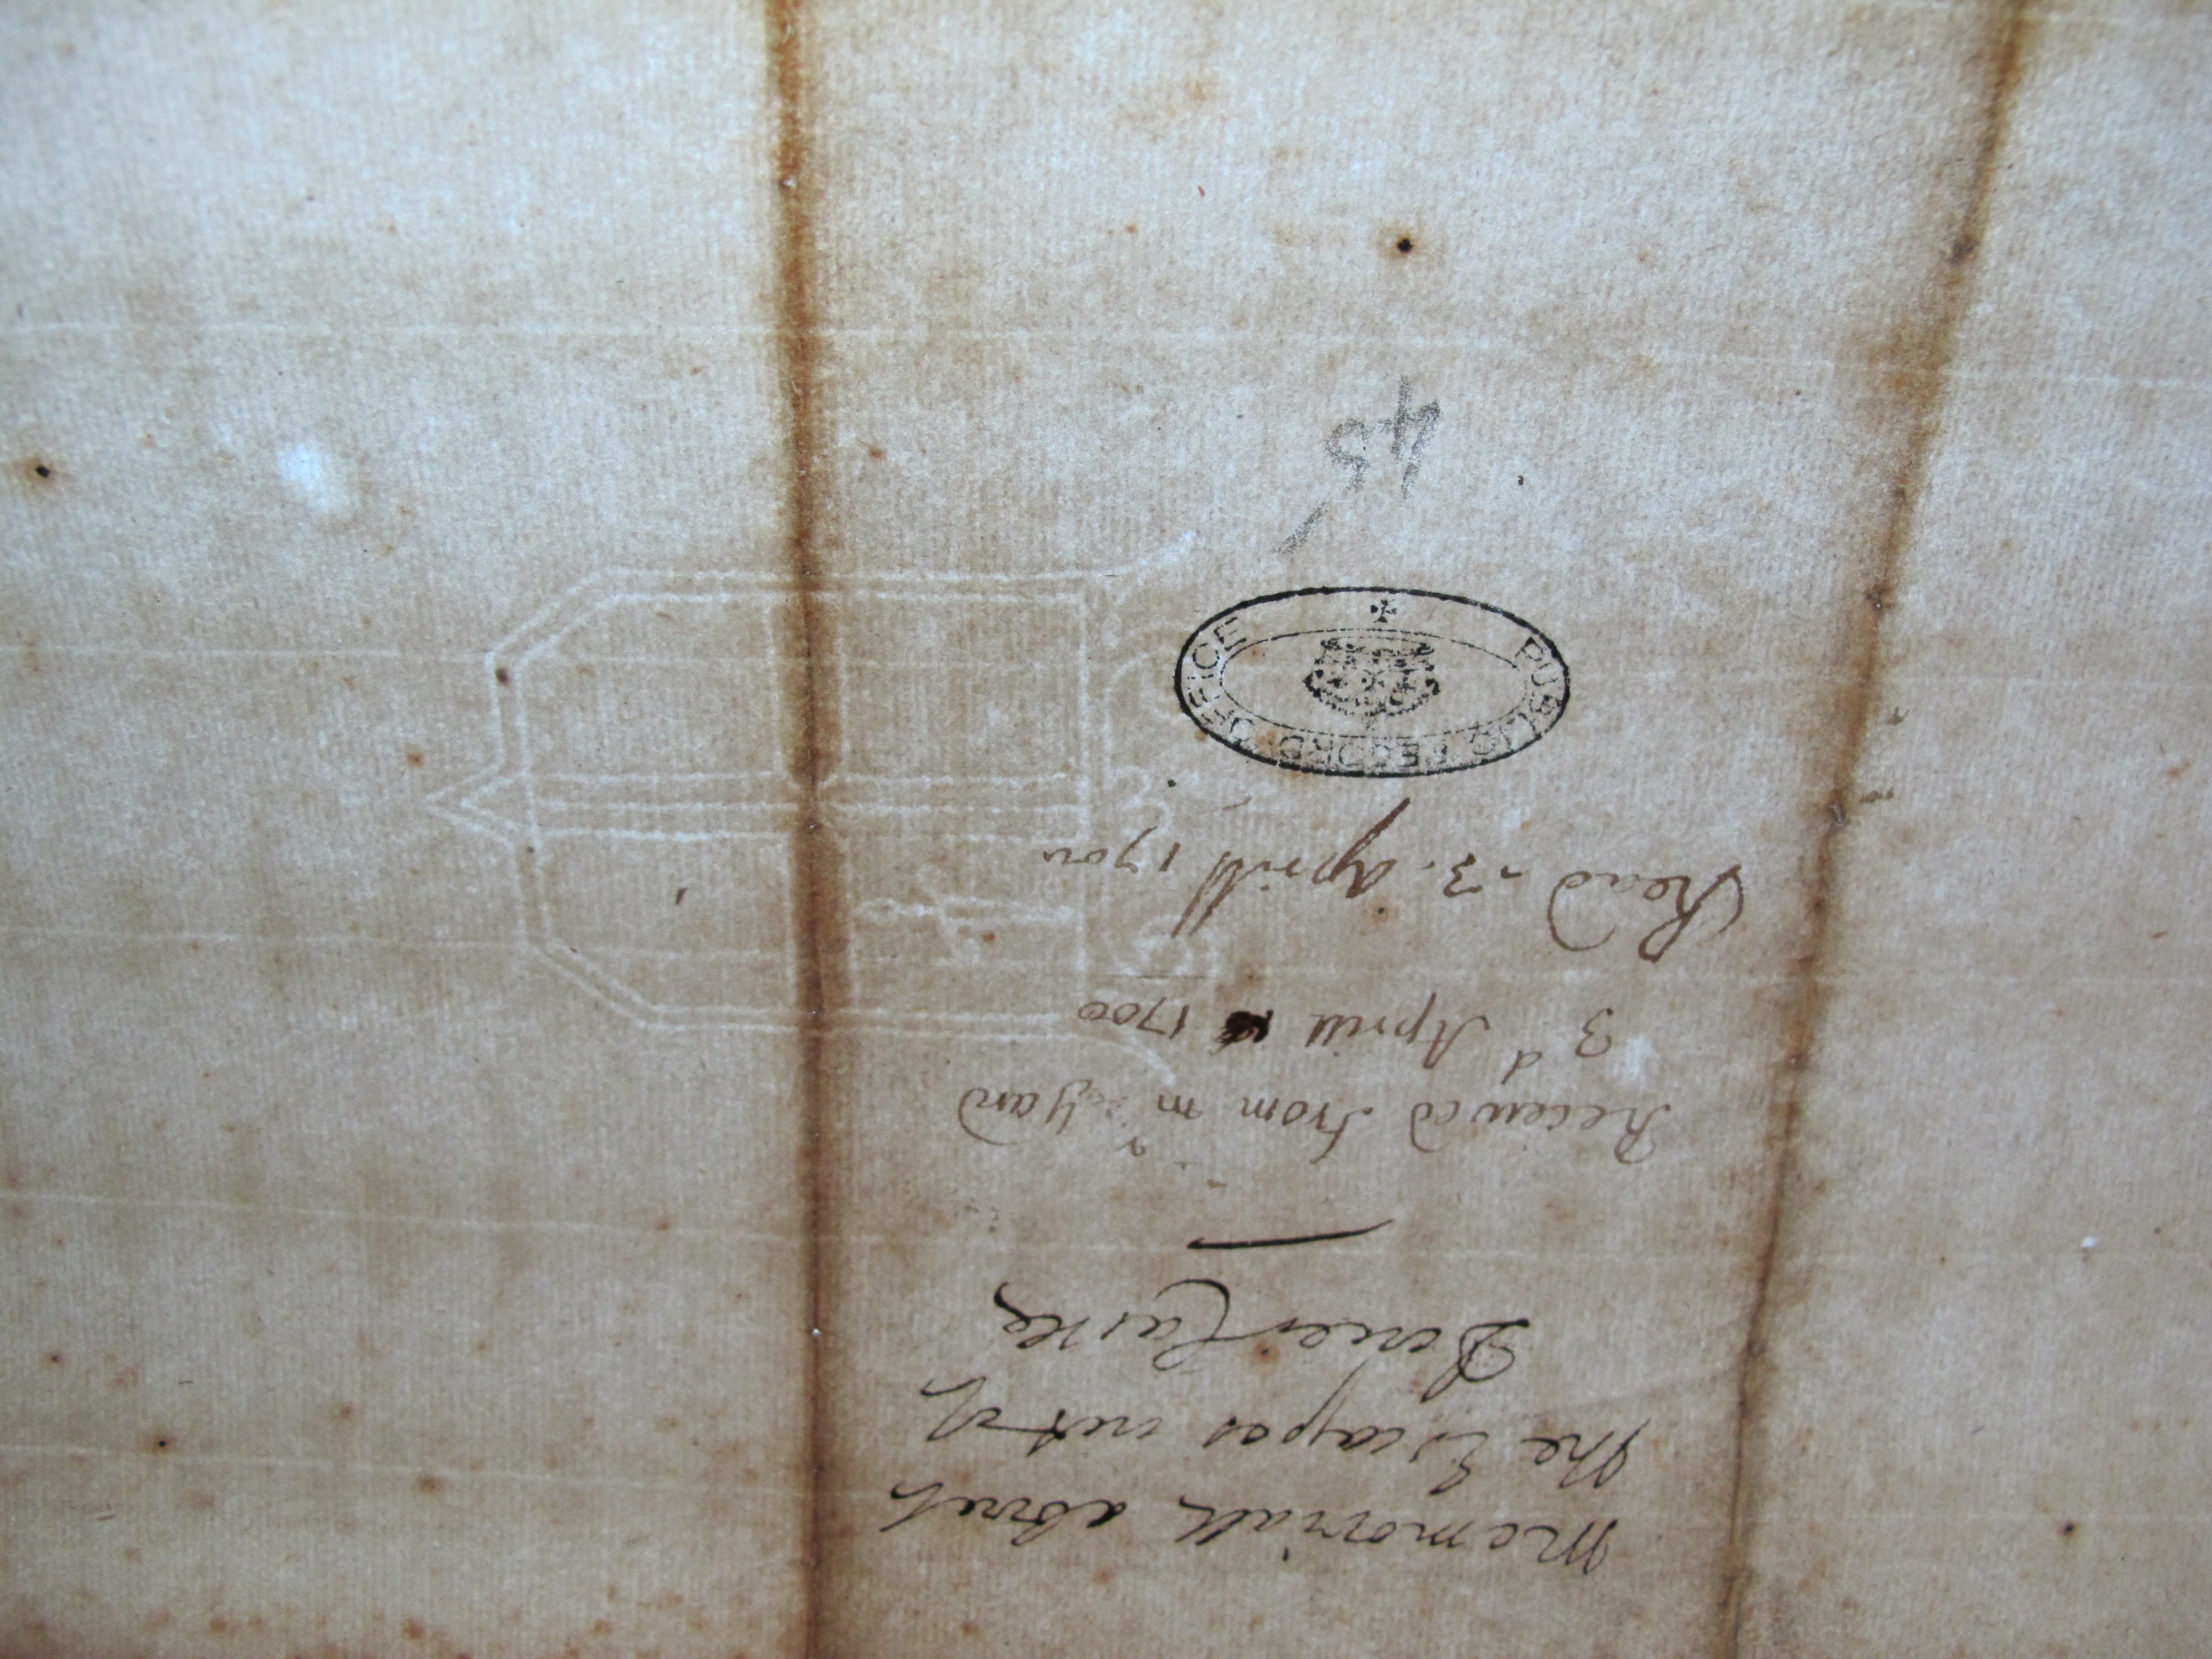 Memoriall about
the Escapes out of
Dover Castle
Received from mr
3d Aprill 1700
Read 3. Aprill 1700
PUBLIC RECORD OFFICE
45